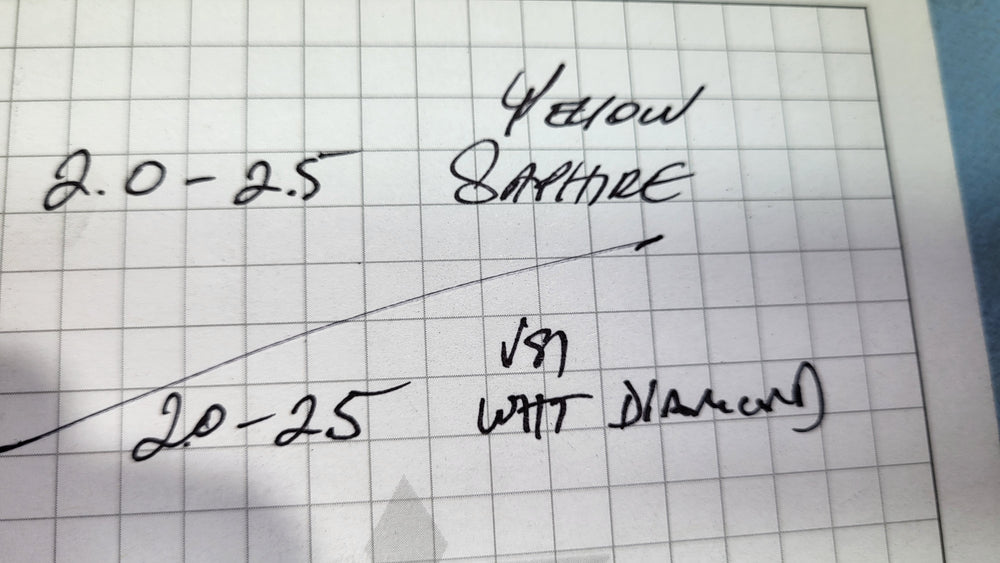 YELLOW
2.0 - 2.5 SAPHIRE
VS1
2.0 - 25 WHT DIAMOND